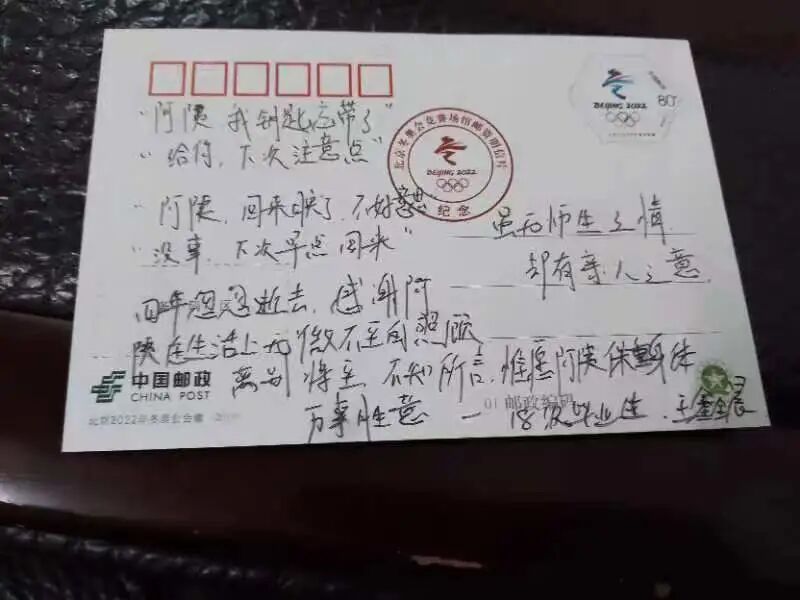 "阿陕 我钥匙忘带了"
"给你,下次注意点"
"阿陕,回来晚了,不好意思
"没事,下次早点回来"
虽无师生之情
却有亲人之意
四年匆匆逝去,感谢阿
陕在生活上无微不至的照顾
离别将至,不知所言,惟愿阿陕保重身体
万事胜意 — 18级毕业生.王鑫晨
北京冬奥会竞赛场馆邮资明信片
BEIJING 2022
纪念
BEIJING 2022
80
中国邮政
CHINA POST
01 邮政编码